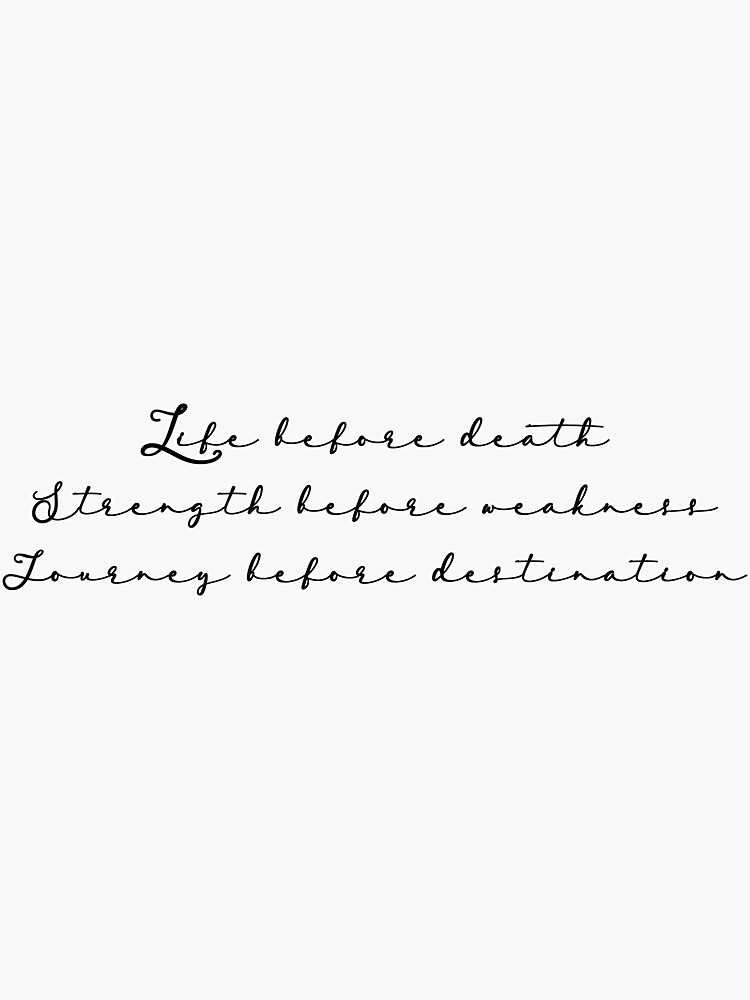 Life before death
Strength before weakness
Journey before destination